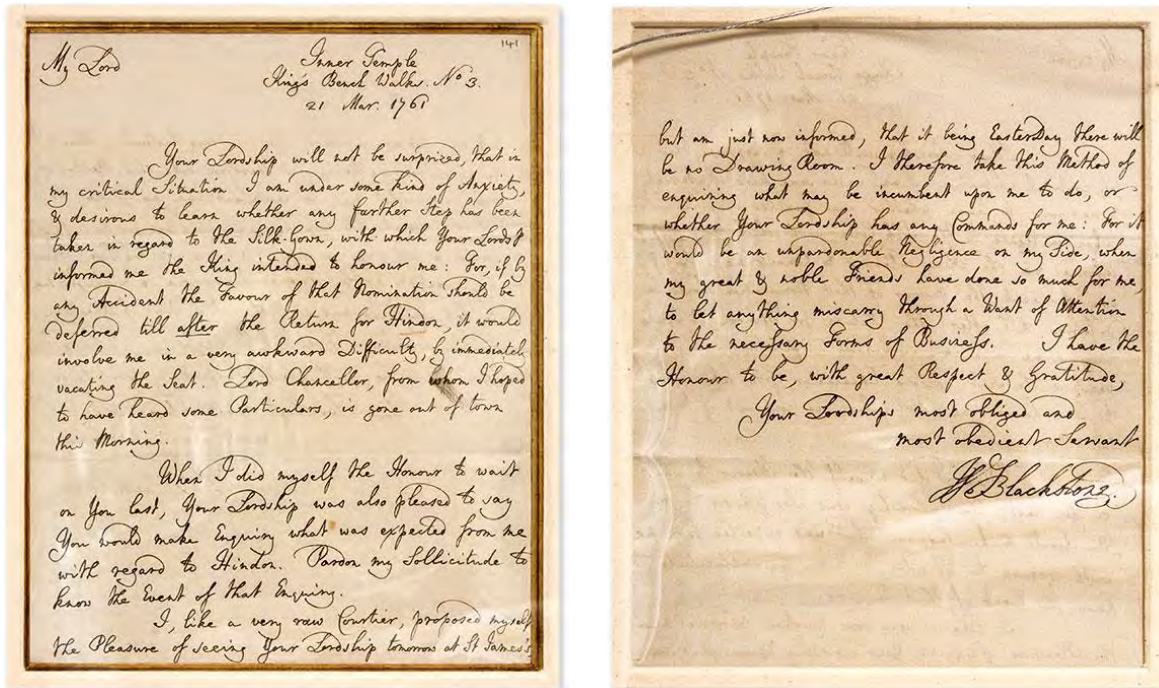 141
My Lord
Inner Temple
King's Bench Walks. No 3.
21 Mar. 1761
Your Lordship will not be surprized, that in
my critical Situation I am under some kind of Anxiety,
& desirous to learn whether any farther Step has been
taken in regard to the Silk-Gown, with which Your Lordsp
informed me the King intended to honour me: For, if by
any Accident the Favour of that Nomination should be
deferred till after the Return for Hindon, it would
involve me in a very awkward Difficulty, by immediately
vacating the Seat. Lord Chancellor, from whom I hoped
to have heard some Particulars, is gone out of town
this Morning.
When I did myself the Honour to wait
on You last, Your Lordship was also pleased to say
You would make Enquiry what was expected from me
with regard to Hindon. Pardon my Sollicitude to
know the Event of that Enquiry.
I, like a very raw Courtier, proposed myself
the Pleasure of seeing Your Lordship tomorrow at St James's
but am just now informed, that it being EasterDay there will
be no Drawing Room. I therefore take this Method of
enquiring what may be incumbent upon me to do, or
whether Your Lordship has any Commands for me: For it
would be an unpardonable Negligence on my Side, when
my great & noble Friends have done so much for me,
to let anything miscarry through a Want of Attention
to the necessary Forms of Business. I have the
Honour to be, with great Respect & Gratitude,
Your Lordships most obliged and
most obedient Servant
Wm Blackstone.